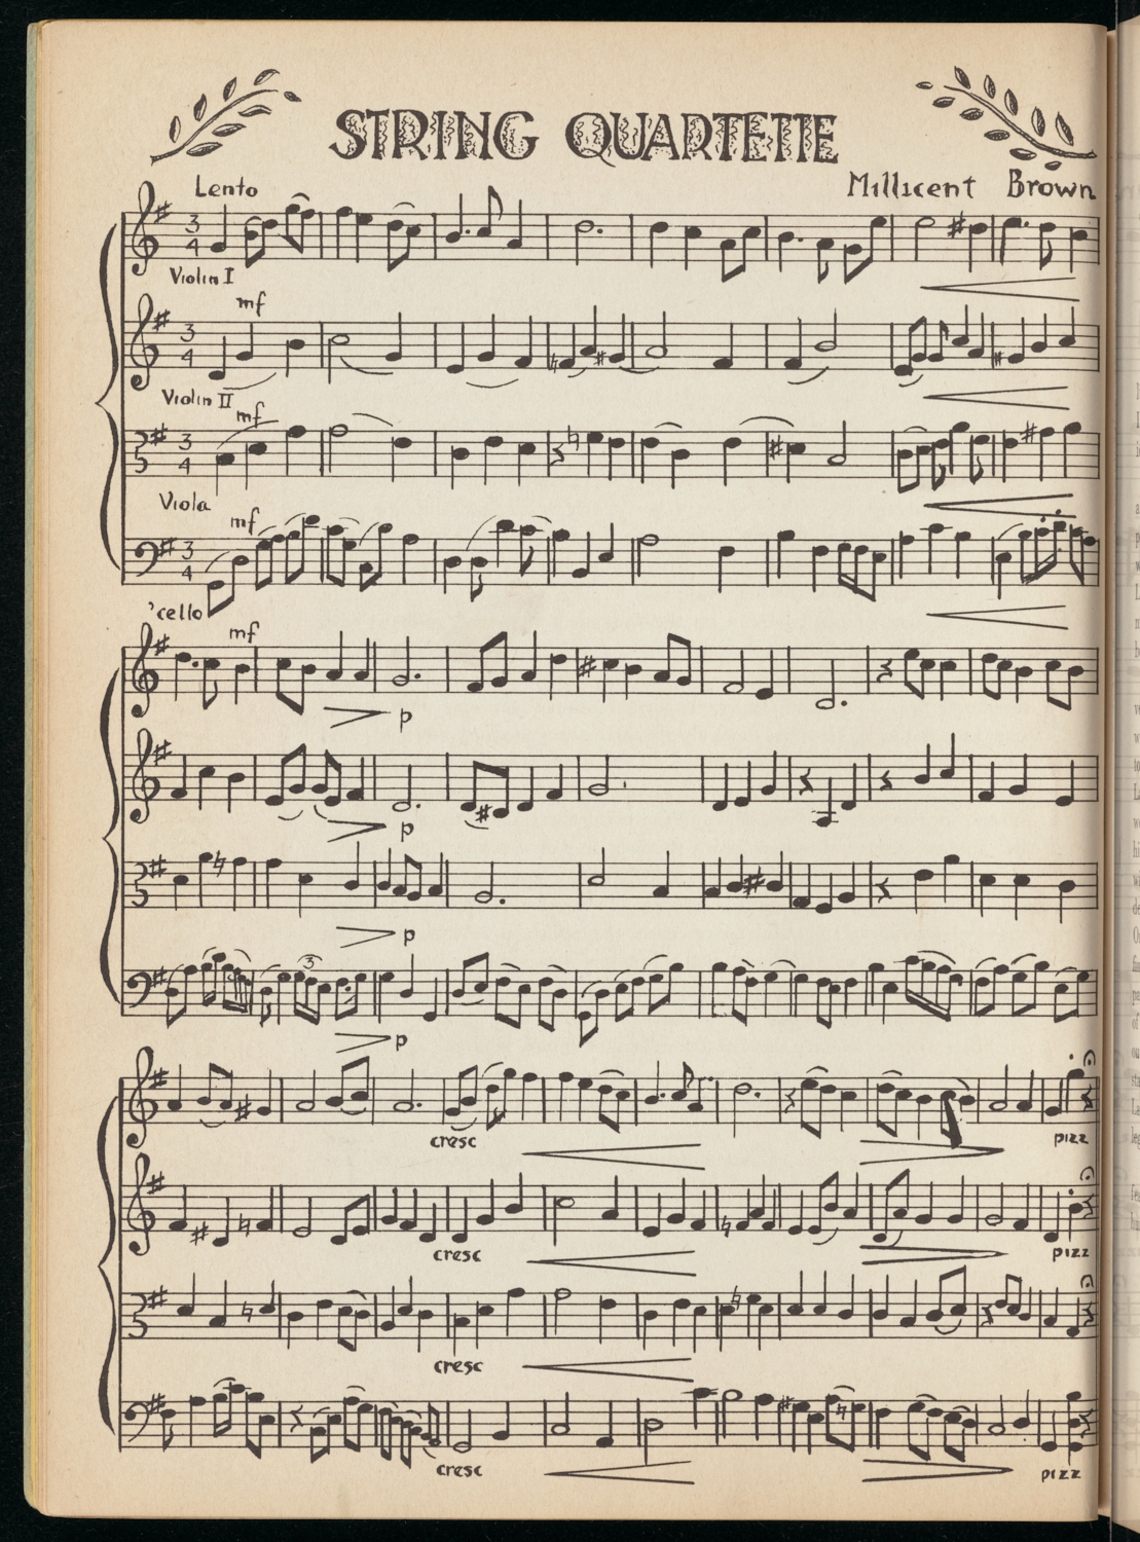 STRING QUARTETTE
Lento
Millicent Brown
3
4
Violin I
mf
3
4
Violin II
mf
3
4
Viola
mf
3
4
'cello
mf
p
p
p
3
p
cresc
pizz
cresc
pizz
cresc
cresc
pizz